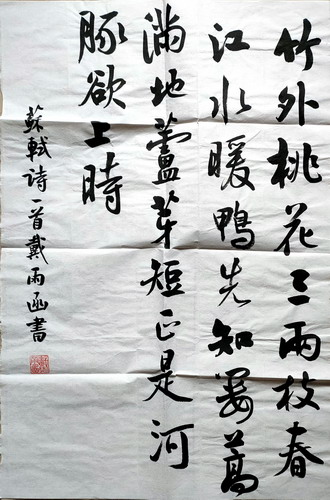 竹外桃花三兩枝春
江水暖鴨先知蔞蒿
滿地蘆芽短正是河
豚欲上時
蘇軾詩一首戴雨函書